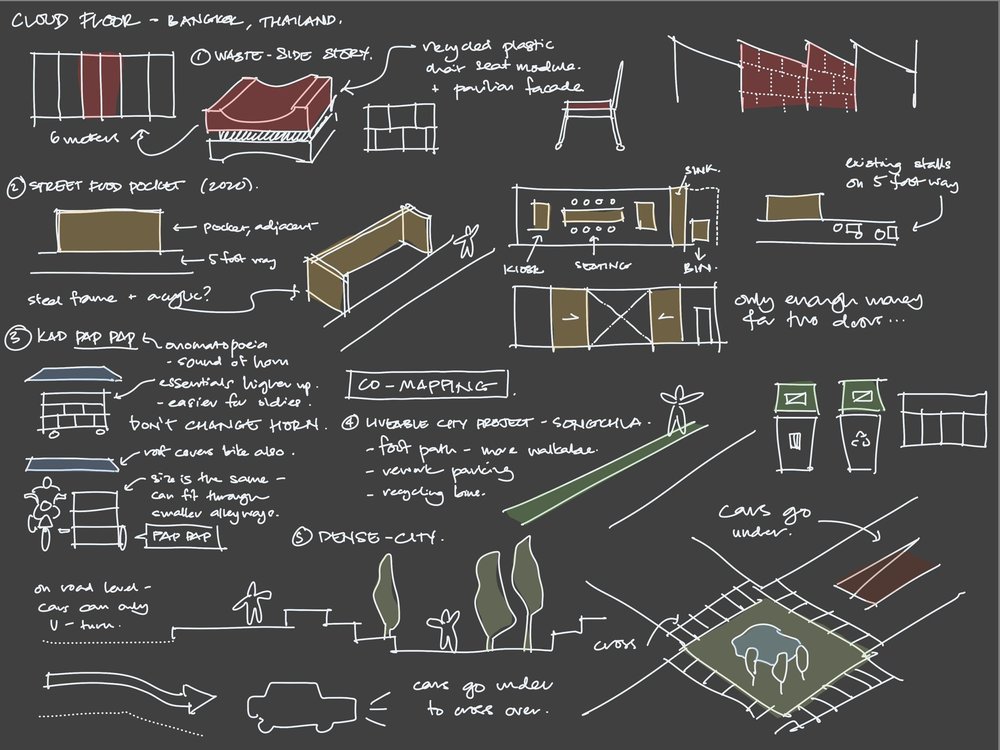 CLOUD FLOOR - BANGKOK, THAILAND.
① WASTE-SIDE STORY.
recycled plastic
chair seat module.
+ pavilion facade
6 meters
② STREET FOOD POCKET (2020).
pocket, adjacent
5 foot way
steel frame + acrylic?
SINK.
KIOSK
SEATING
BIN.
existing stalls
on 5 foot way
only enough money
for two doors...
③ KAD PAP PAP
onomatopoeia
- sound of horn
essentials higher up.
- easier for oldies.
DON'T CHANGE HORN.
roof covers bike also.
size is the same -
can fit through
smaller alleyways.
PAP PAP
CO-MAPPING
④ LIVEABLE CITY PROJECT - SONGKHLA.
- foot path - more walkable.
- rework parking
- recycling bins.
⑤ DENSE-CITY.
on road level -
cars can only
U-turn.
cars go under
to cross over.
cars go
under.
cross